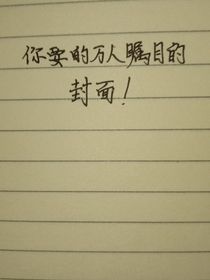 你要的万人瞩目的
封面！